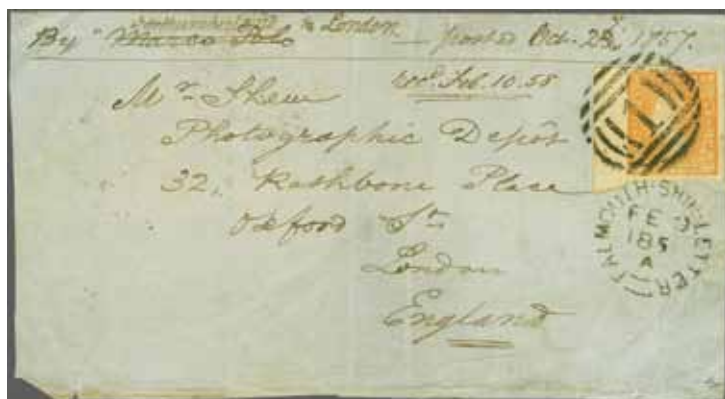 By "Marco Polo to London. — posted Oct. 23rd, 1857.
recd. Feb. 10. 58
Mr. Shew
Photographic Depôt
32, Rathbone Place
Oxford St.
London
England
1
FALMOUTH · SHIP · LETTER
FE
185
A